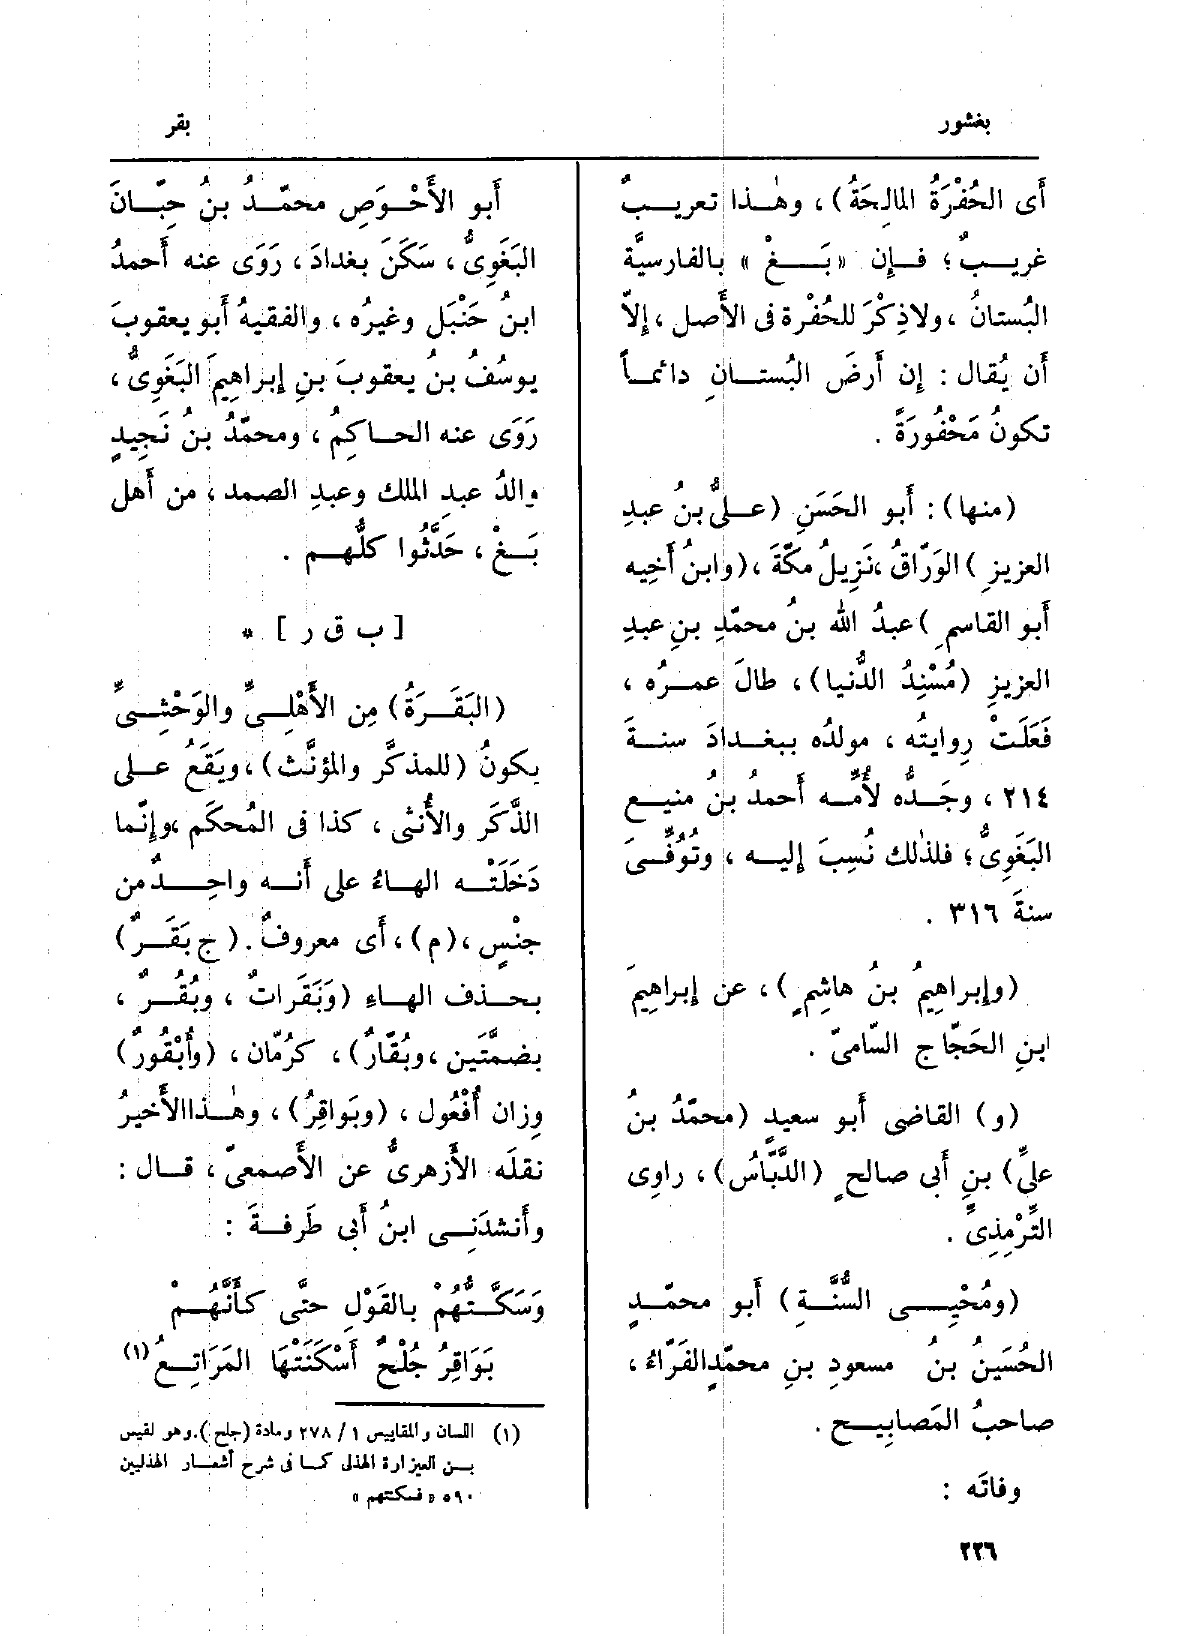 بغشور
بقر
أى الحُفْرَةُ المَالِحَةُ)، وهٰـذا تعريـبٌ
غريـبٌ؛ فـإن «بَـغْ» بالفارسيَّة
البُستانُ، ولاذِكْرَ للحُفْرة فى الأَصل، إلاّ
أَن يُقال: إن أَرضَ البُستـانِ دائمـاً
تكونُ مَحْفُورَةً .
(منها): أَبو الحَسَنِ (علىُّ بنُ عبدِ
العزيزِ) الوَرّاقُ، نَزِيلُ مكّةَ، (وابنُ أَخِيه
أَبو القاسمِ) عبدُ الله بنُ محمّدِ بنِ عبدِ
العزيزِ (مُسْنِدُ الدُّنيا)، طالَ عمـرُه،
فَعَلَتْ رِوايتُه، مولدُه ببغـدادَ سنـةَ
٢١٤، وجَـدُّه لأُمِّـه أَحمدُ بنُ منيـع
البَغَوِىُّ؛ فلذٰلك نُسِبَ إليـه، وتُوُفِّـىَ
سنةَ ٣١٦ .
(وإبراهيمُ بنُ هاشِمٍ)، عن إبراهيمَ
ابنِ الحَجّاجِ السّامىّ .
(و) القاضى أَبو سعيدٍ (محمّدُ بنُ
علىٍّ) بنِ أَبى صالحٍ (الدَّبّاسُ)، راوِى
التِّرْمِذِىِّ .
(ومُحْيِـى السُّنَّـةِ) أَبو محمّـدٍ
الحُسَيْنُ بنُ مسعودِ بنِ محمّدٍ الفَرّاءُ،
صاحبُ المَصابِيـح .
وفاتَه :
أَبو الأَحْـوَصِ محمّـدُ بنُ حِبّـانَ
البَغَوِىُّ، سَكَنَ بغدادَ، رَوَى عنه أَحمدُ
ابنُ حَنْبَل وغيرُه، والفقيهُ أَبو يعقوبَ
يوسُفُ بنُ يعقوبَ بنِ إبراهيمَ البَغَوِىُّ،
رَوَى عنه الحـاكِمُ، ومحمّدُ بنُ نَجِيدٍ
والدُ عبدِ الملك وعبدِ الصمد، من أَهل
بَـغْ، حَدَّثُوا كلُّهـم .
[ ب ق ر ] *
(البَقَـرَةُ) مِن الأَهْلِـىِّ والوَحْشِـىِّ
يكونُ (للمذكَّر والمؤنَّث)، ويَقَعُ علـى
الذَّكَر والأُنثى، كذا فى المُحكَم، وإنّما
دَخَلَتْـه الهـاءُ على أَنـه واحِـدٌ من
جنْسٍ، (م)، أَى معروفٌ. (ج بَقَـرٌ)
بحـذف الهـاءِ (وَبَقَراتٌ، وبُقُـرٌ،
بضمَّتَين، وبُقّارٌ)، كرُمّان، (وأُبْقُورٌ)
وِزان أُفْعُول، (وبَواقِرُ)، وهٰـذا الأَخيرُ
نقلَه الأَزهرىُّ عن الأَصمعىّ، قـال :
وأَنشدَنِـى ابنُ أَبى طَرفـةَ :
وَسَكَّـتُّهُمْ بالقَوْلِ حتَّى كـأَنَّهُـمْ
بَوَاقِرُ جُلْحٌ أَسْكَنَتْهَا المَرَاتِـعُ (١)
(١) اللسان والمقاييس ١ / ٢٧٨ ومادة (جلح)، وهو لقيس
بـن العيزارة الهذلى كمـا فى شرح أشعـار الهذليين
٥٩٠ «فسكتهم»
٢٢٦